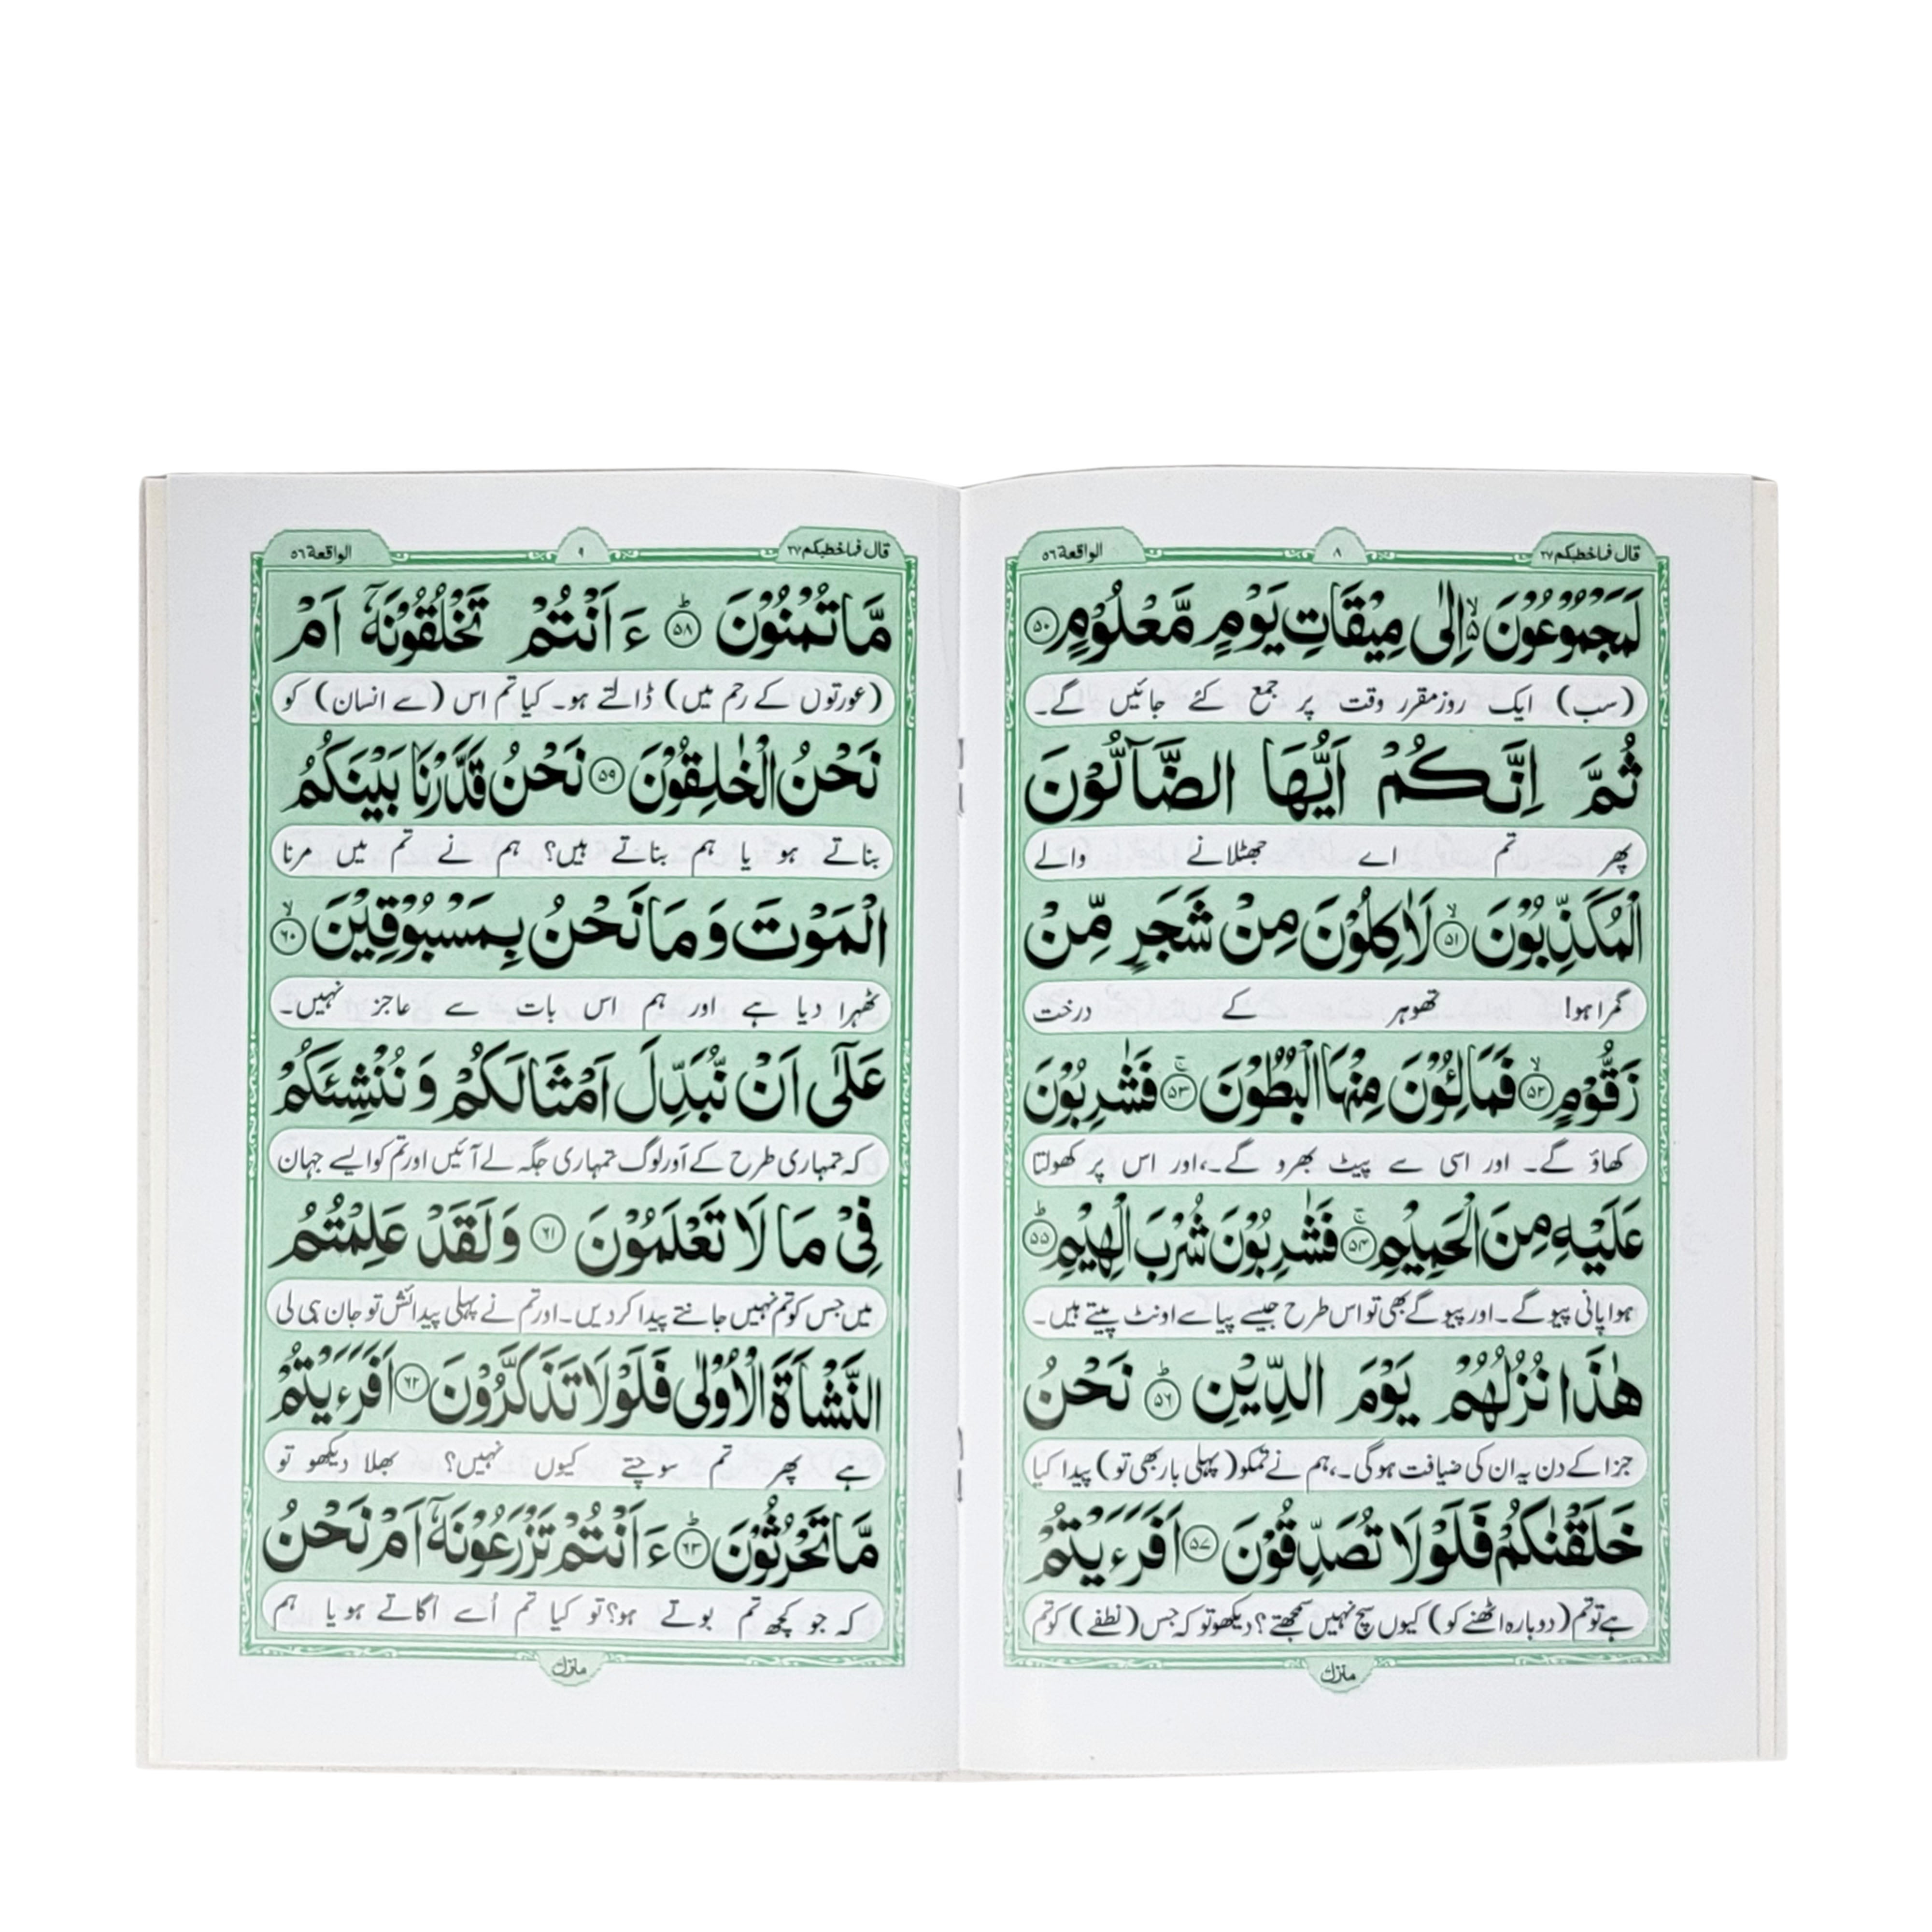 قال فماخطبكم ٢٧
٨
الواقعة ٥٦
لَمَجْمُوْعُوْنَ ۙ۵ اِلٰى مِيْقَاتِ يَوْمٍ مَّعْلُوْمٍ ۵۰
(سب) ایک روز مقرر وقت پر جمع کئے جائیں گے۔
ثُمَّ اِنَّكُمْ اَيُّهَا الضَّآلُّوْنَ
پھر تم اے جھٹلانے والے
الْمُكَذِّبُوْنَ ۙ۵۱ لَاٰكِلُوْنَ مِنْ شَجَرٍ مِّنْ
گمراہو! تھوہر کے درخت
زَقُّوْمٍ ۙ۵۲ فَمَالِـُٔوْنَ مِنْهَا الْبُطُوْنَ ۚ۵۳ فَشٰرِبُوْنَ
کھاؤ گے۔ اور اسی سے پیٹ بھرو گے۔،اور اس پر کھولتا
عَلَيْهِ مِنَ الْحَمِيْمِ ۚ۵۴ فَشٰرِبُوْنَ شُرْبَ الْهِيْمِ ؕ۵۵
ہوا پانی پیو گے۔اور پیو گے بھی تو اس طرح جیسے پیاسے اونٹ پیتے ہیں۔
هٰذَا نُزُلُهُمْ يَوْمَ الدِّيْنِ ؕ۵۶ نَحْنُ
جزا کے دن یہ ان کی ضیافت ہوگی۔،ہم نے تمکو (پہلی بار بھی تو) پیدا کیا
خَلَقْنٰكُمْ فَلَوْلَا تُصَدِّقُوْنَ ۵۷ اَفَرَءَيْتُمْ
ہے تو تم (دوبارہ اٹھنے کو) کیوں سچ نہیں سمجھتے؟ دیکھو تو کہ جس (نطفے) کو تم
منزل
قال فماخطبكم ٢٧
٩
الواقعة ٥٦
مَّا تُمْنُوْنَ ؕ۵۸ ءَاَنْتُمْ تَخْلُقُوْنَهٗٓ اَمْ
(عورتوں کے رحم میں) ڈالتے ہو۔ کیا تم اس (سے انسان) کو
نَحْنُ الْخٰلِقُوْنَ ۵۹ نَحْنُ قَدَّرْنَا بَيْنَكُمُ
بناتے ہو یا ہم بناتے ہیں؟ ہم نے تم میں مرنا
الْمَوْتَ وَمَا نَحْنُ بِمَسْبُوْقِيْنَ ۙ۶۰
ٹھہرا دیا ہے اور ہم اس بات سے عاجز نہیں۔
عَلٰٓى اَنْ نُّبَدِّلَ اَمْثَالَكُمْ وَنُنْشِئَكُمْ
کہ تمہاری طرح کے اَور لوگ تمہاری جگہ لے آئیں اور تم کو ایسے جہان
فِيْ مَا لَا تَعْلَمُوْنَ ۶۱ وَلَقَدْ عَلِمْتُمُ
میں جس کو تم نہیں جانتے پیدا کر دیں۔ اور تم نے پہلی پیدائش تو جان ہی لی
النَّشْاَةَ الْاُوْلٰى فَلَوْلَا تَذَكَّرُوْنَ ۶۲ اَفَرَءَيْتُمْ
ہے پھر تم سوچتے کیوں نہیں؟ بھلا دیکھو تو
مَّا تَحْرُثُوْنَ ؕ۶۳ ءَاَنْتُمْ تَزْرَعُوْنَهٗٓ اَمْ نَحْنُ
کہ جو کچھ تم بوتے ہو؟ تو کیا تم اُسے اگاتے ہو یا ہم
منزل